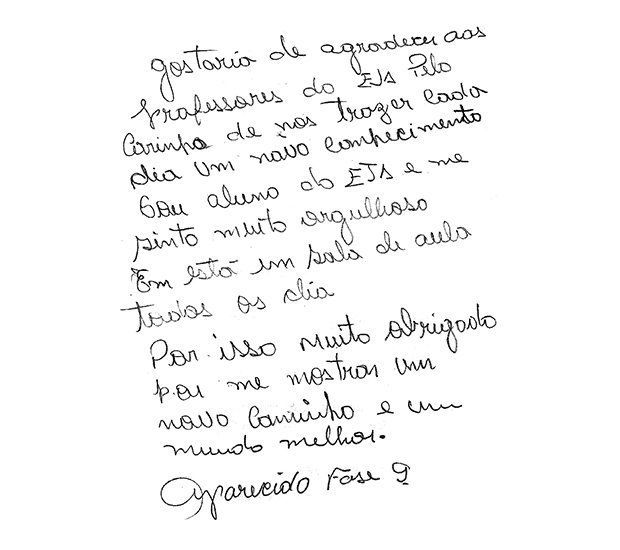 gostaria de agradecer aos
professores do EJA Pelo
Carinho de nos trazer cada
dia um novo conhecimento
Sou aluno do EJA e me
sinto muito orgulhoso
Em está em sala de aula
todos os dia
Por isso muito obrigado
por me mostrar um
novo Caminho e um
mundo melhor.
Aparecido Fase 9